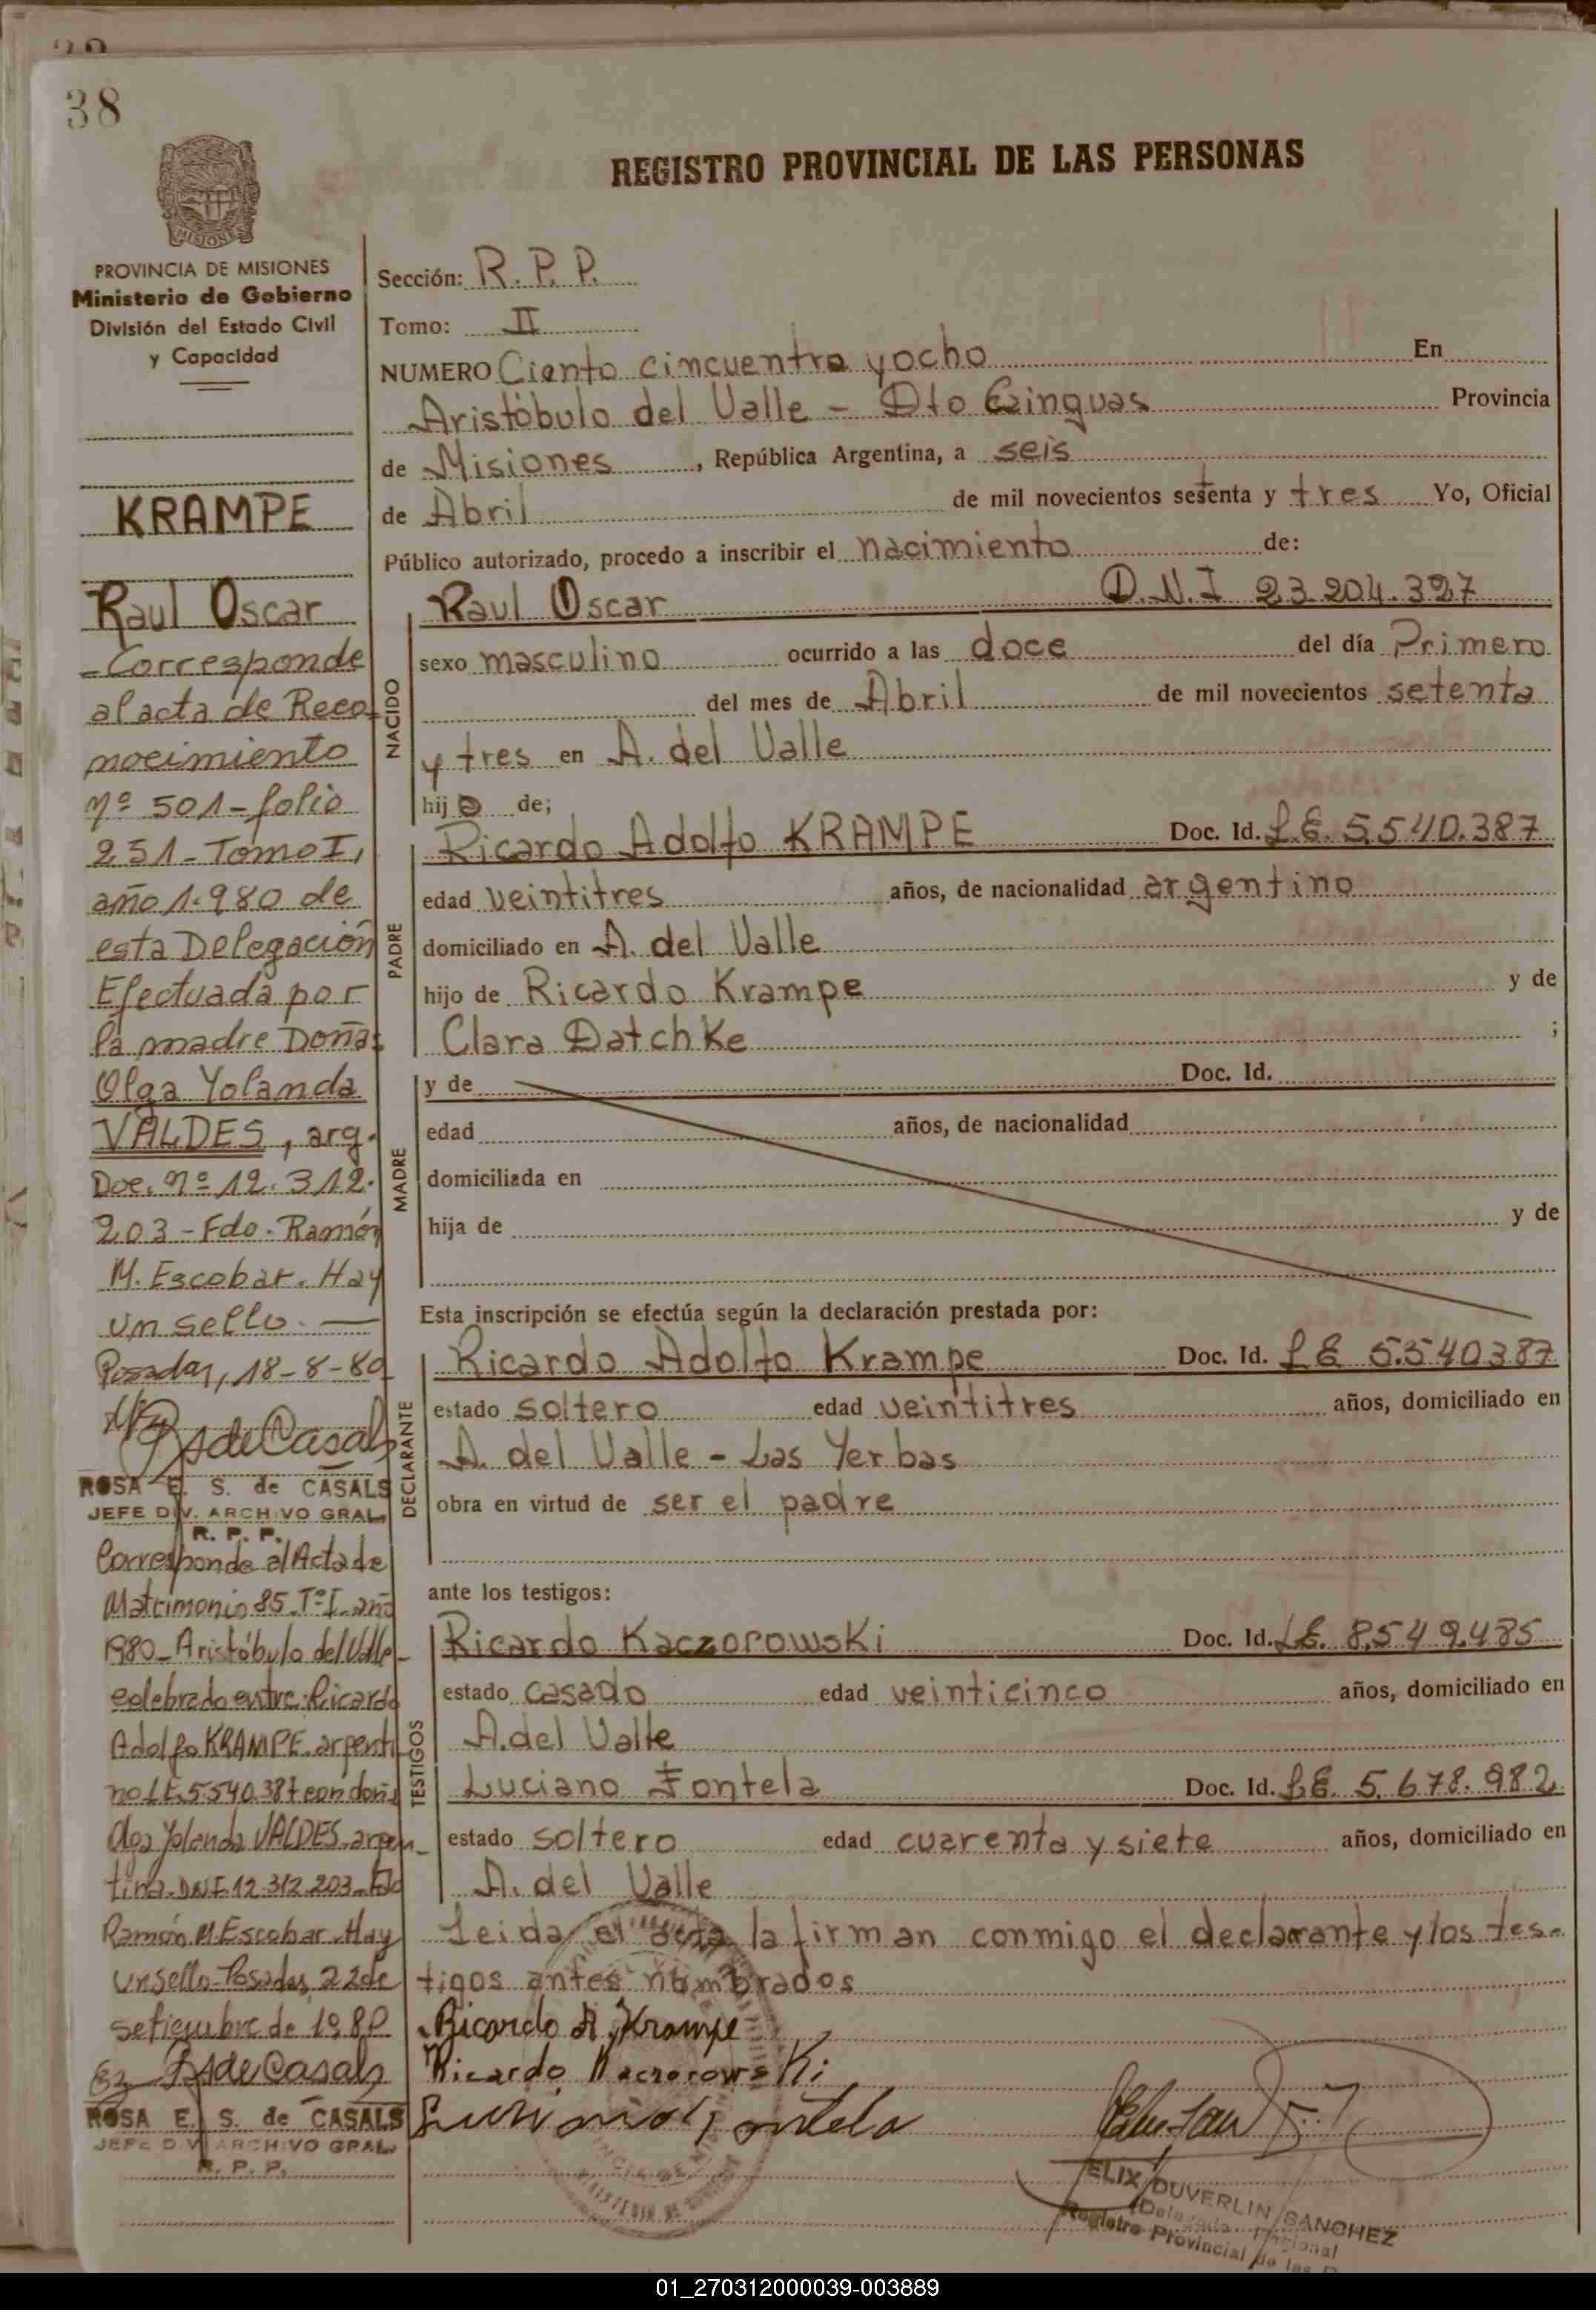 38
REGISTRO PROVINCIAL DE LAS PERSONAS
MISIONES
PROVINCIA DE MISIONES
Ministerio de Gobierno
División del Estado Civil
y Capacidad
KRAMPE
Raul Oscar
- Corresponde
al acta de Reco-
nocimiento
Nº 501 - folio
251 - Tomo I,
año 1.980 de
esta Delegación
Efectuada por
la madre Doña:
Olga Yolanda
VALDES, arg.
Doc. Nº 12.312.
203 - Fdo. Ramón
M. Escobar. Hay
un sello. —
Posadas, 18-8-80
RSdeCasals
ROSA E. S. de CASALS
JEFE DIV. ARCHIVO GRAL.
R. P. P.
Corresponde al Acta de
Matrimonio 85 Tº I año
1980 - Aristóbulo del Valle -
celebrado entre: Ricardo
Adolfo KRAMPE argenti
no L.E. 5540.387 con doña
Olga Yolanda VALDES argen-
tina DNI 12.312.203 - Fdo
Ramón M Escobar - Hay
un sello - Posadas, 22 de
setiembre de 1980
RSdeCasals
ROSA E. S. de CASALS
JEFE DIV ARCHIVO GRAL.
R. P. P.
Sección: R. P. P.
Tomo: II
NUMERO Ciento cincuentra y ocho En
Aristóbulo del Valle - Dto Cainguas Provincia
de Misiones , República Argentina, a seis
de Abril de mil novecientos setenta y tres Yo, Oficial
Público autorizado, procedo a inscribir el nacimiento de:
NACIDO
Raul Oscar D.N.I 23.204.327
sexo masculino ocurrido a las doce del día Primero
del mes de Abril de mil novecientos setenta
y tres en A. del Valle
hijo de;
PADRE
Ricardo Adolfo KRAMPE Doc. Id. L.E. 5.540.387
edad veintitres años, de nacionalidad argentino
domiciliado en A. del Valle
hijo de Ricardo Krampe y de
Clara Datchke ;
MADRE
y de Doc. Id.
edad años, de nacionalidad
domiciliada en
hija de y de
Esta inscripción se efectúa según la declaración prestada por:
DECLARANTE
Ricardo Adolfo Krampe Doc. Id. L E 5.540387
estado soltero edad veintitres años, domiciliado en
A. del Valle - Las Yerbas
obra en virtud de ser el padre
ante los testigos:
TESTIGOS
Ricardo Kaczorowski Doc. Id. L.E. 8.549.485
estado casado edad veinticinco años, domiciliado en
A. del Valle
Luciano Fontela Doc. Id. L.E. 5.678.982
estado soltero edad cuarenta y siete años, domiciliado en
A. del Valle
Leida el acta la firman conmigo el declarante y los tes-
tigos antes nombrados
Ricardo A. Krampe
Ricardo Kaczorowski
Luciano Fontela
FELIX DUVERLIN SANCHEZ
Delegado Regional
Registro Provincial de las
01_270312000039-003889